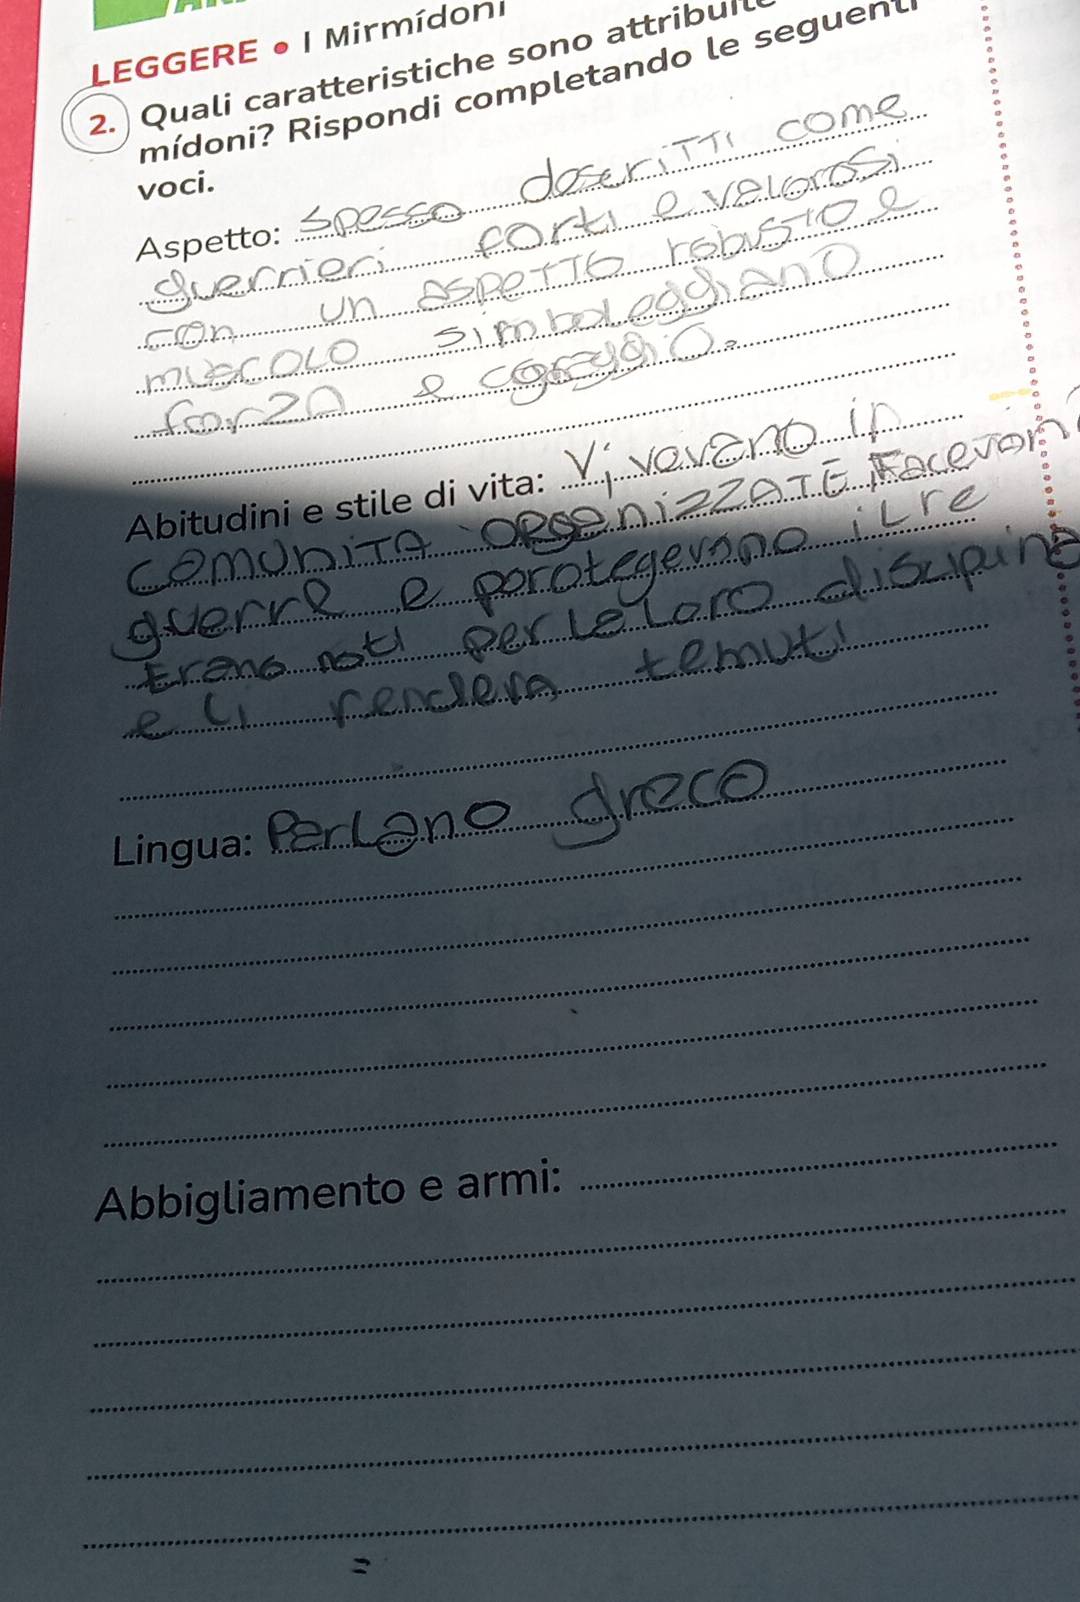 LEGGERE • I Mirmídoni
2. Quali caratteristiche sono attribuite
mídoni? Rispondi completando le seguenti
voci.
Aspetto: spesso doseriTTi come
guerrieri forti e velorosi
con un aspeTTo robusTo e
muscolo simboleggiano
forza e coraggio.
Abitudini e stile di vita: Viveveno in
comuniTA orgenizzATE Facevano
guerre e porotegevano il re
Erano noti per le loro discipine
e li rendeva temuti
Lingua: Parlano greco
Abbigliamento e armi: